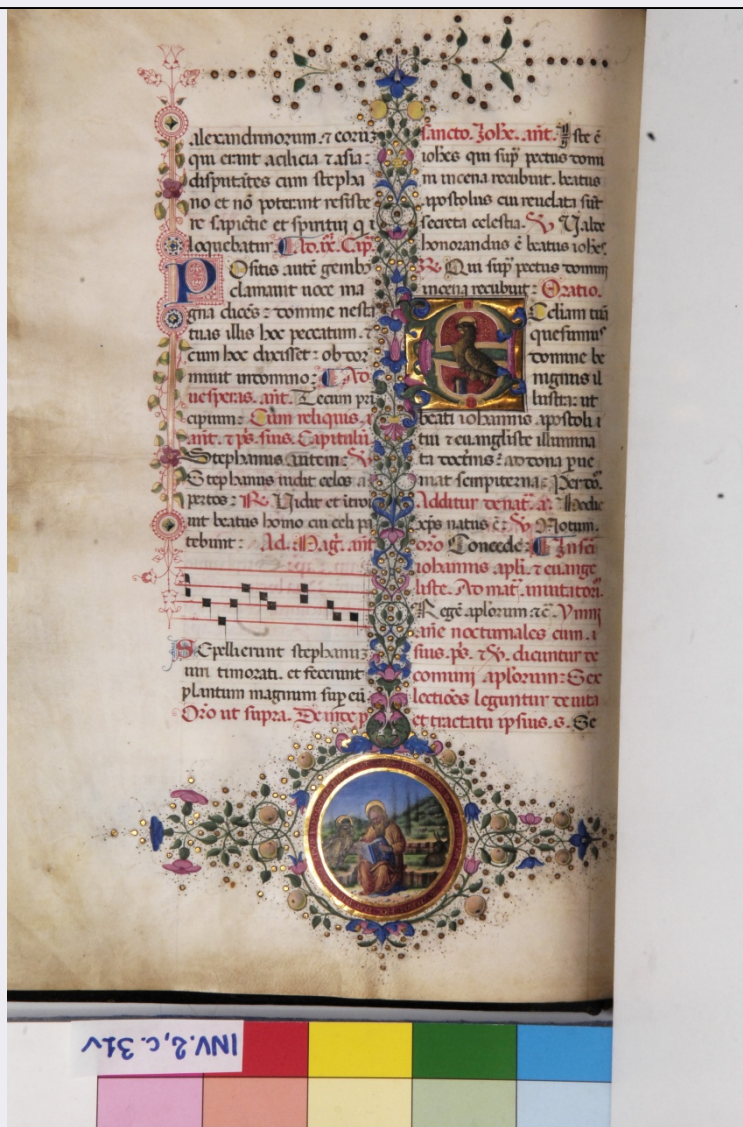 alexandrinorum. ⁊ eoruʒ
qui erant acilicia ⁊ asia:
disputātes cum stepha
no et nō poterant resiste
re sapiētie et spiritui q i
loquebatur. Ad. ix. Cap.
Positis autē genibꝰ
clamauit uoce ma
gna dicēs: domine nesta
tuas illis hoc peccatum. ⁊
cum hoc dixisset: obdor
miuit indomino: Ad
uesperas. ant. Tecum pri
cipium: Cum reliquis. a
ant. ⁊ ps. suis. Capitulū
Stephanus autem: V.
Stephanus uidit celos a
pertos: R. Vidit et itroi
uit beatus homo cui celi pa
tebunt: Ad. Mag. ant
Sepelierunt stephanuʒ
uiri timorati. et fecerunt
plantum magnum sup eū.
Oro ut supra. De inde p
sancto. Iohe. ant. Iste ē
iohēs qui sup̄ pectus domi
ni incena recubuit. beatus
apostolus cui reuelata sūt
secreta celestia. V. Valde
honorandus ē beatus iohēs
R. Qui sup̄ pectus domini
incena recubuit: Oratio.
Ecliam tuā
quesumus
domine be
nignus il
lustra: ut
beati iohannis apostoli
tui ⁊ euangliste illumina
ta doctrinis: ad dona pue
niat sempiterna: Per dō.
Additur de nat. a. Hodie
xp̄s natus ē: V. Notum.
oro Concede: In sci
iohannis apli. ⁊ euange
liste. Ad mat̄. inuitatori.
Regē aplorum ⁊c. Ymni
nocturnales cum
suis. ps. ⁊ V. dicuntur de
comuni aplorum: Sex
lectiōes leguntur de uita
et tractatu ipsius. s. Se
INV.2, c. 31v